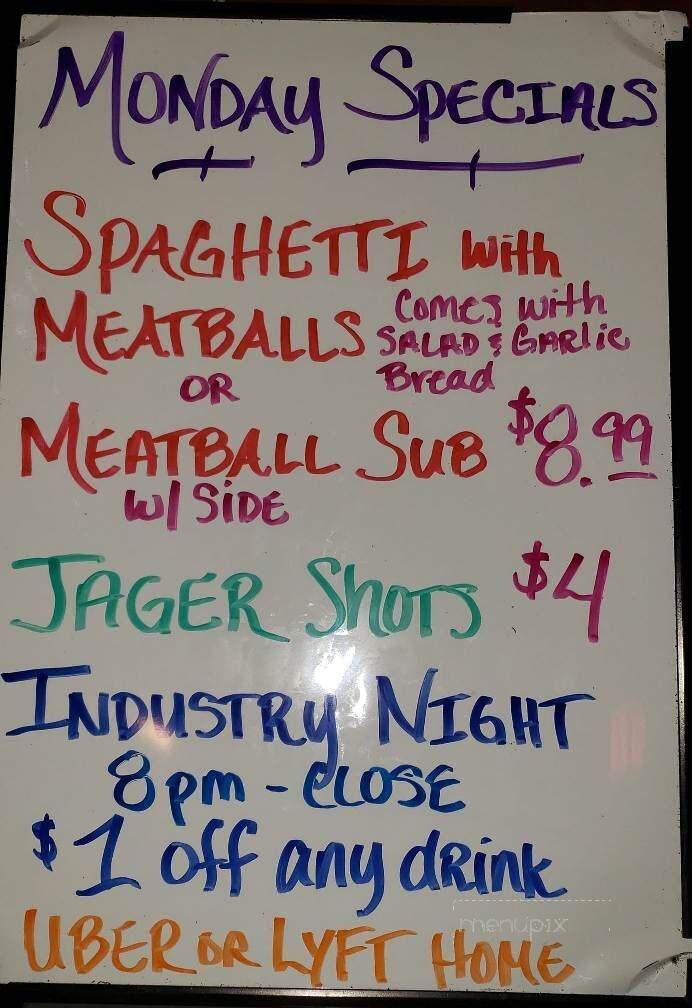 MONDAY SPECIALS
SPAGHETTI with
MEATBALLS
Comes with
SALAD & GARlic
Bread
OR
MEATBALL SUB $8.99
W/ SIDE
JAGER SHOTS $4
INDUSTRY NIGHT
8pm - CLOSE
$1 off any dRink
UBER OR LYFT HOME
menupix